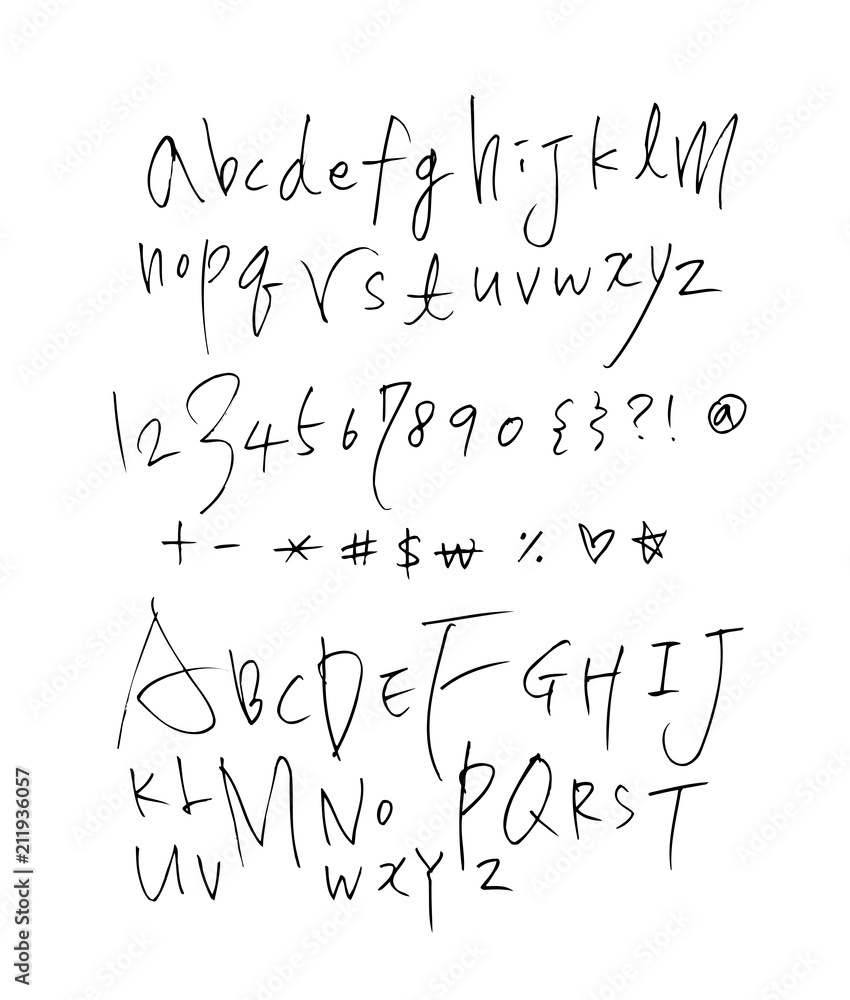 abcdefghijklm
nopqrstuvwxyz
1234567890{}?!@
+ - * # $ ₩ % ♡ ☆
ABCDEFGHIJ
KLMNOPQRST
UVWXYZ
Adobe Stock | #211936057